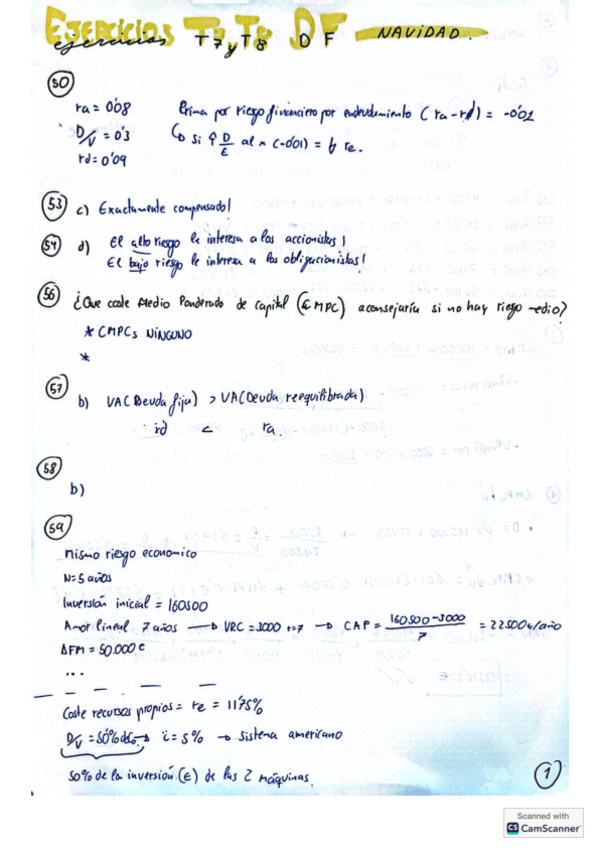 EJERCICIOS T7 y T8 DF NAVIDAD.
ejercicios
50
ra = 0'08 Prima por riesgo financiero por endeudamiento (ra - rd) = -0'01
D/V = 0'3 si ↑ D/E al n (-0'01) = re.
rd = 0'09
53 c) Exactamente compensado!
54 d) El alto riesgo le interesa a los accionistas!
El bajo riesgo le interesa a los obligacionistas!
56 ¿Que coste Medio Ponderado de Capital (CMPC) aconsejaría si no hay riesgo medio?
* CMPCs NINGUNO
*
57
b) VA(Deuda fija) > VA(Deuda reequilibrada)
rd < ra.
58
b)
59
Mismo riesgo economico
N = 5 años
Inversión inicial = 160500
Amor lineal 7 años → VRC = 3000 t=7 → CAP = 160500 - 3000 / 7 = 22500 €/año
ΔFM = 50.000 €
...
Coste recursos propios = re = 11'75%
D/V = 50% → i = 5% → sistema americano
50% de la inversión (€) de las 2 máquinas.
1
Scanned with
CS CamScanner